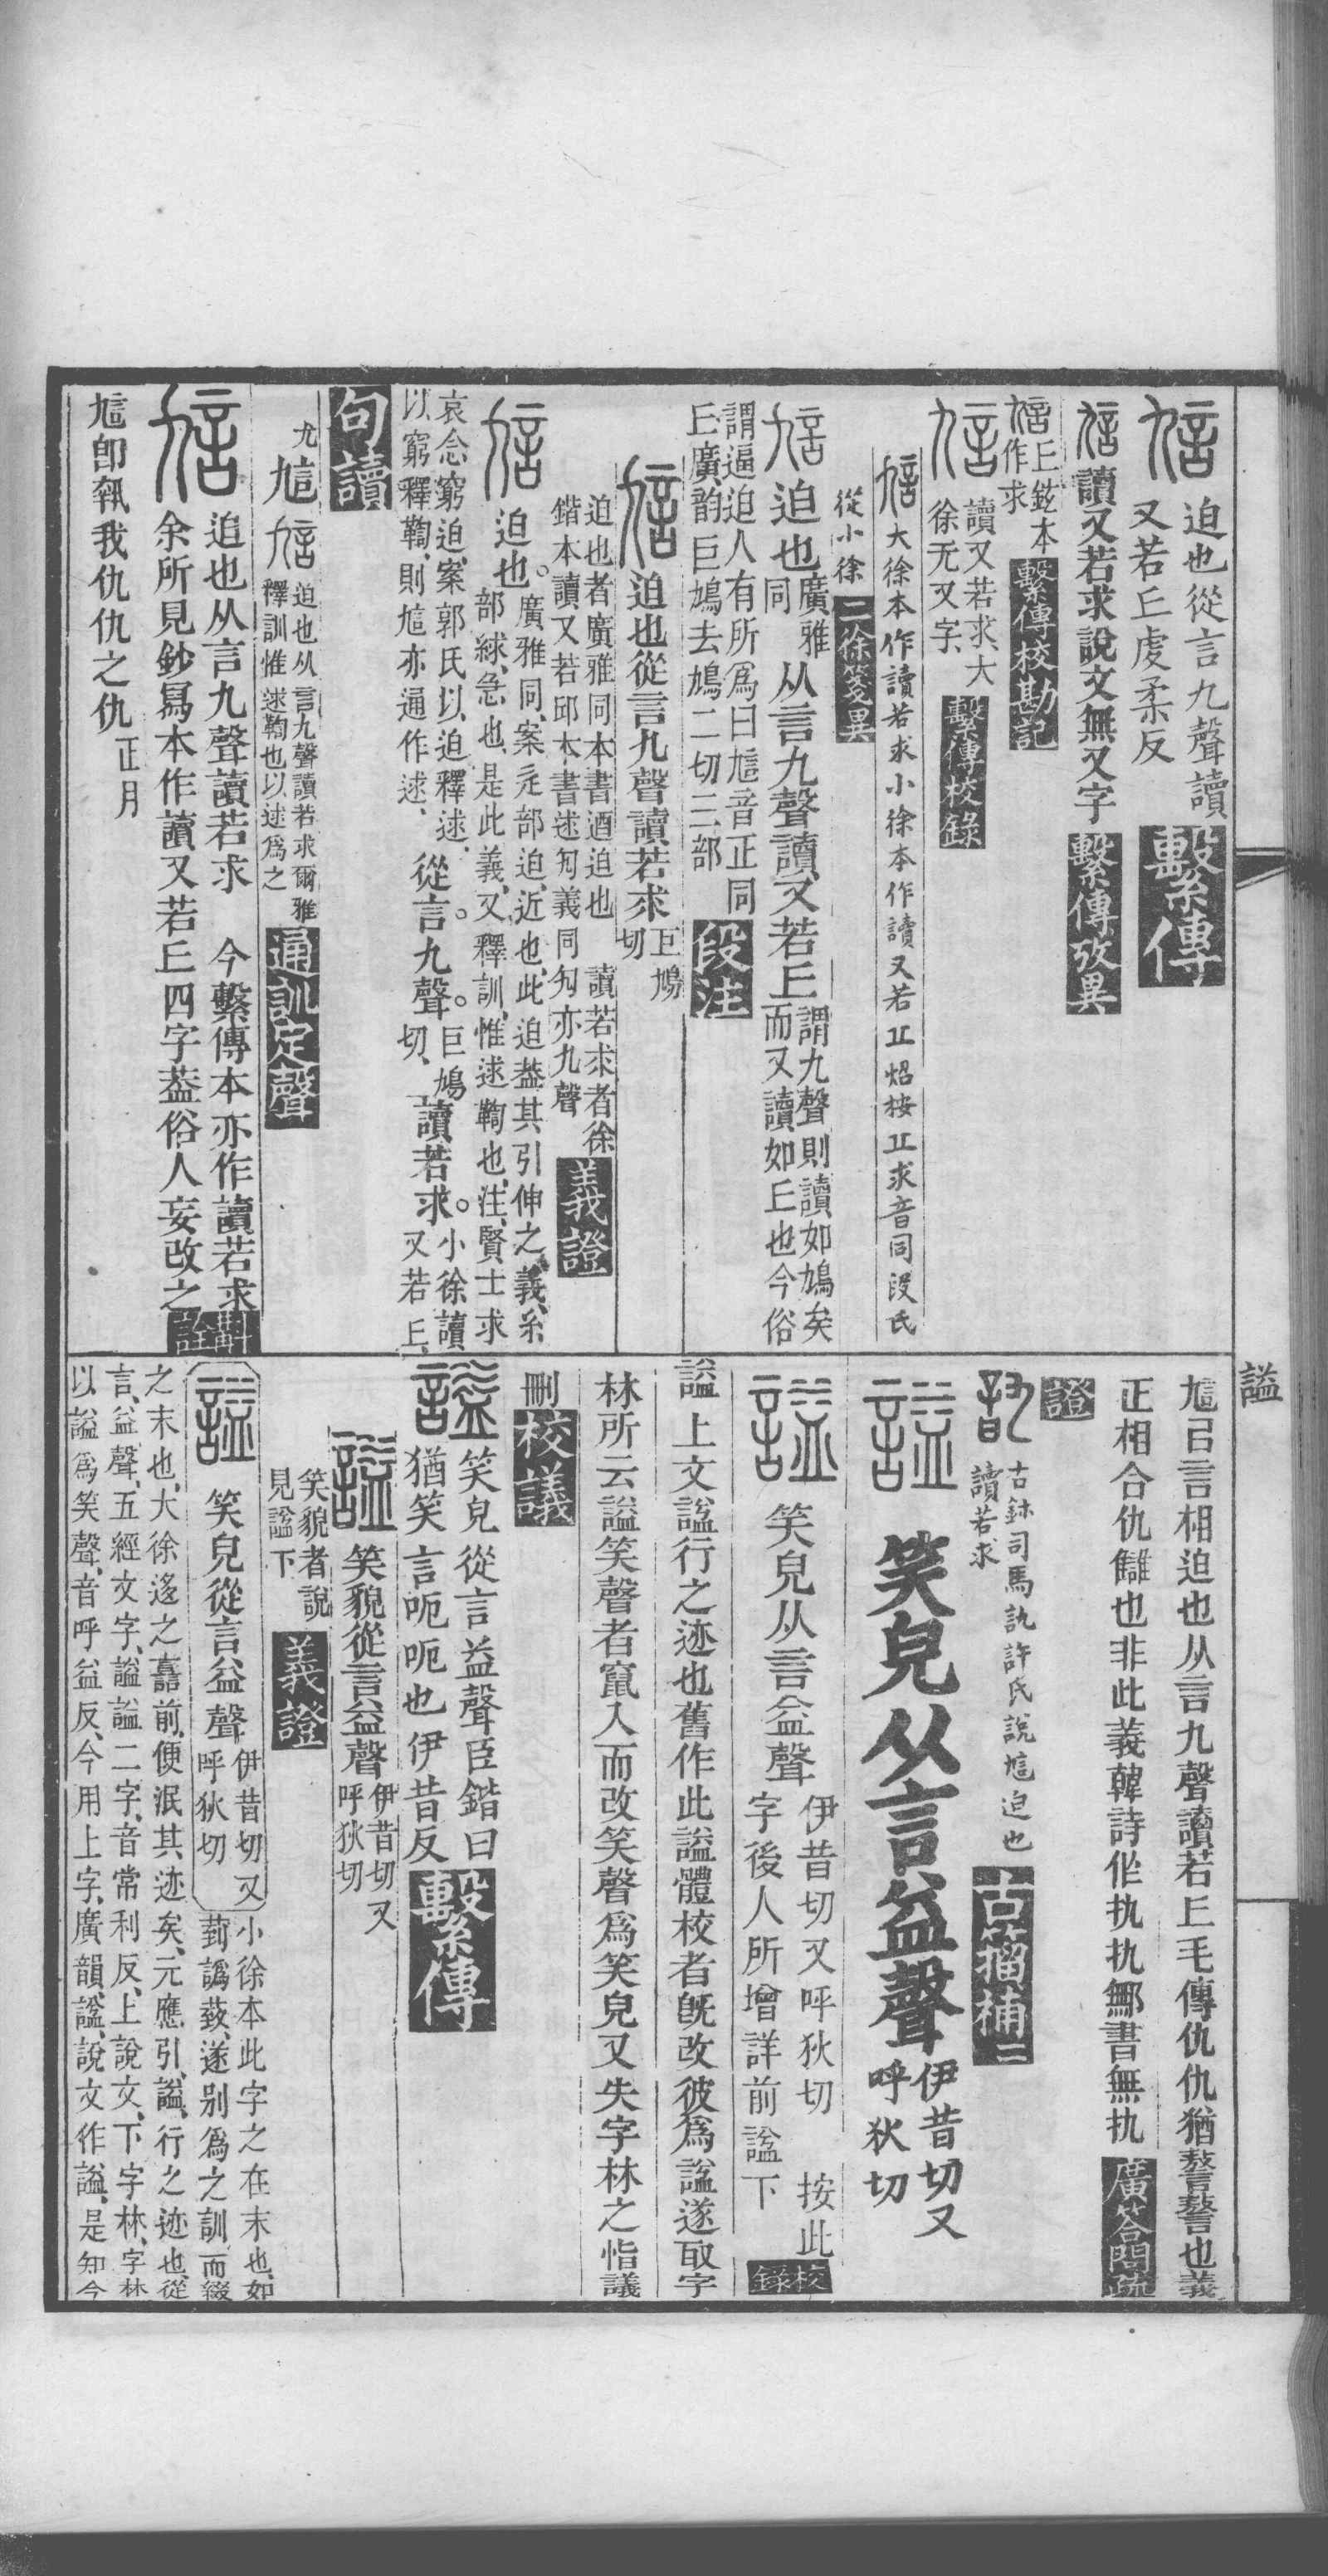 迫也從言九聲讀
又若丘虔柔反
繫傳
讀又若求說文無又字
繫傳攷異
丘鈙本
作求
繫傳校勘記
讀又若求大
徐无又字
繫傳校錄
大徐本作讀若求小徐本作讀又若丘炤按丘求音同段氏
從小徐
二徐箋異
迫也
廣雅
同
从言九聲讀又若丘
謂九聲則讀如鳩矣
而又讀如丘也今俗
謂逼迫人有所爲曰訄音正同
丘廣韵巨鳩去鳩二切三部
段注
迫也從言九聲讀若求
巨鳩
切
迫也者廣雅同本書逎迫也 讀若求者徐
鍇本讀又若邱本書逑匓義同匓亦九聲
義證
迫也
廣雅同案辵部迫近也此迫葢其引伸之義糸
部絿急也是此義又釋訓惟逑鞫也注賢士求
哀念窮迫案郭氏以迫釋逑
以窮釋鞫則訄亦通作逑
從言九聲
巨鳩
切
讀若求
小徐讀
又若丘
句讀
尤訄
迫也从言九聲讀若求爾雅
釋訓惟逑鞫也以逑爲之
通訓定聲
迫也从言九聲讀若求 今繫傳本亦作讀若求
余所見鈔寫本作讀又若丘四字葢俗人妄改之
斠詮
訄卽執我仇仇之仇
正月
謚
訄㠯言相迫也从言九聲讀若丘毛傳仇仇猶謷謷也義
正相合仇讎也非此義韓詩作扏扏鄦書無扏
廣答問疏
證
古鉨司馬訅許氏說訄迫也
讀若求
古籀補二
笑皃从言益聲
伊昔切又
呼狄切
笑皃从言益聲
伊昔切又呼狄切 按此
字後人所增詳前諡下
校錄
謚上文諡行之迹也舊作此謚體校者旣改彼爲諡遂取字
林所云謚笑聲者竄入而改笑聲爲笑皃又失字林之恉議
刪
校議
笑皃從言益聲臣鍇曰
猶笑言呃呃也伊昔反
繫傳
笑貌從言益聲
伊昔切又
呼狄切
笑貌者說
見諡下
義證
笑皃從言益聲
伊昔切又
呼狄切
小徐本此字之在末也如
葪譌蔱遂別爲之訓而綴
之末也大徐迻之譶前便泯其迹矣元應引謚行之迹也從
言益聲五經文字謚諡二字音常利反上說文下字林字林
以謚爲笑聲音呼益反今用上字廣韻諡說文作謚是知今